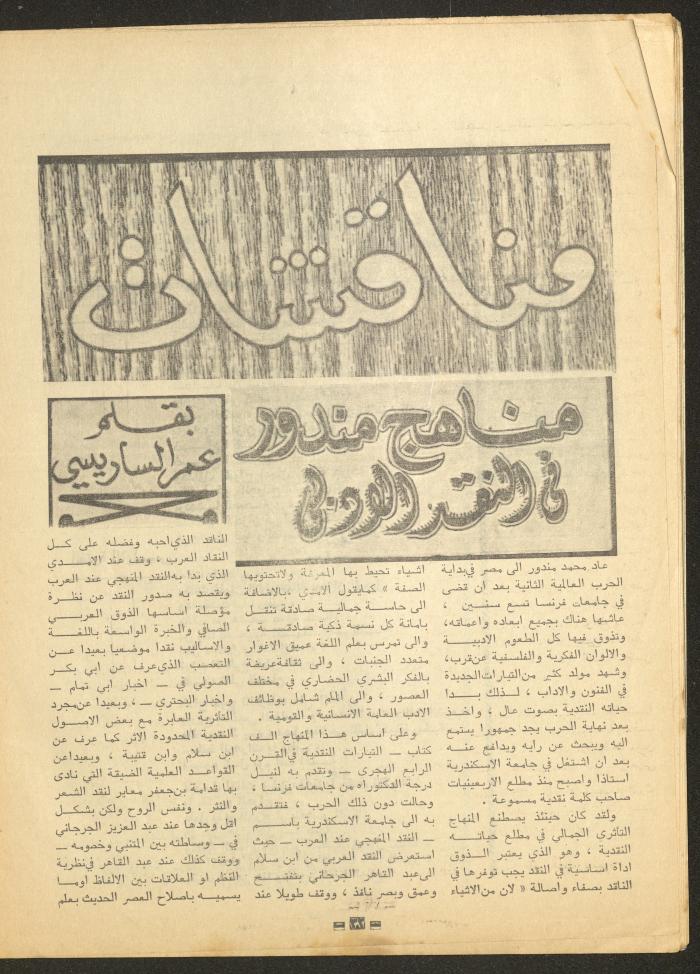 مناقشات
مناهج مندور
في النقد الادبي
بقلم
عمر الساريسي
عاد محمد مندور الى مصر في بداية
الحرب العالمية الثانية بعد ان قضى
في جامعات فرنسا تسع سنين ،
عاشها هناك بجميع ابعاده واعماقه،
وتذوق فيها كل الطعوم الادبية
والالوان الفكرية والفلسفية عن قرب،
وشهد مولد كثير من التيارات الجديدة
في الفنون والاداب ، لذلك بدا
حياته النقدية بصوت عال ، واخذ
بعد نهاية الحرب يجد جمهورا يستمع
اليه ويبحث عن رايه ويدافع عنه
بعد ان اشتغل في جامعة الاسكندرية
استاذا واصبح منذ مطلع الاربعينيات
صاحب كلمة نقدية مسموعة .
ولقد كان حينئذ يصطنع المنهاج
التاثري الجمالي في مطلع حياته
النقدية ، وهو الذي يعتبر الذوق
اداة اساسية في النقد يجب توفرها في
الناقد بصفاء واصالة « لان من الاشياء
اشياء تحيط بها المعرفة ولاتحتويها
الصفة » كمايقول الامدي ،بالاضافة
الى حاسة جمالية صادقة تنقل
بامانة كل نسمة ذكية صادقة ،
والى تمرس بعلم اللغة عميق الاغوار
متعدد الجنبات ، والى ثقافةعريضة
بالفكر البشري الحضاري في مختلف
العصور ، والى المام شامل بوظائف
الادب العامة الانسانية والقومية .
وعلى اساس هذا المنهاج الف
كتاب — التيارات النقدية في القرن
الرابع الهجري — وتقدم به لنيل
درجة الدكتوراه من جامعات فرنسا ،
وحالت دون ذلك الحرب ، فتقدم
به الى جامعة الاسكندرية باسم
— النقد المنهجي عند العرب — حيث
استعرض النقد العربي من ابن سلام
الى عبد القاهر الجرجاني بتفتح
وعمق وبصر نافذ ، ووقف طويلا عند
الناقد الذي احبه وفضله على كل
النقاد العرب ، وقف عند الامدي
الذي بدا به النقد المنهجي عند العرب
ويقصد به صدور النقد عن نظرة
مؤصلة اساسها الذوق العربي
الصافي والخبرة الواسعة باللغة
والاساليب نقدا موضعيا بعيدا عن
التعصب الذي عرف عن ابي بكر
الصولي في — اخبار ابي تمام —
واخبار البحتري — ، وبعيدا عن مجرد
التأثرية العابرة مع بعض الاصول
النقدية المحدودة الاثر كما عرف عن
ابن سلام وابن قتيبة ، وبعيدا عن
القواعد العلمية الضيقة التي نادى
بها قدامة بن جعفر معاير لنقد الشعر
والنثر . ونفس الروح ولكن بشكل
اقل وجدها عند عبد العزيز الجرجاني
في — وساطته بين المتنبي وخصومه —
ووقف كذلك عند عبد القاهر في نظرية
النظم او العلاقات بين الالفاظ اوما
يسميه باصلاح العصر الحديث بعلم